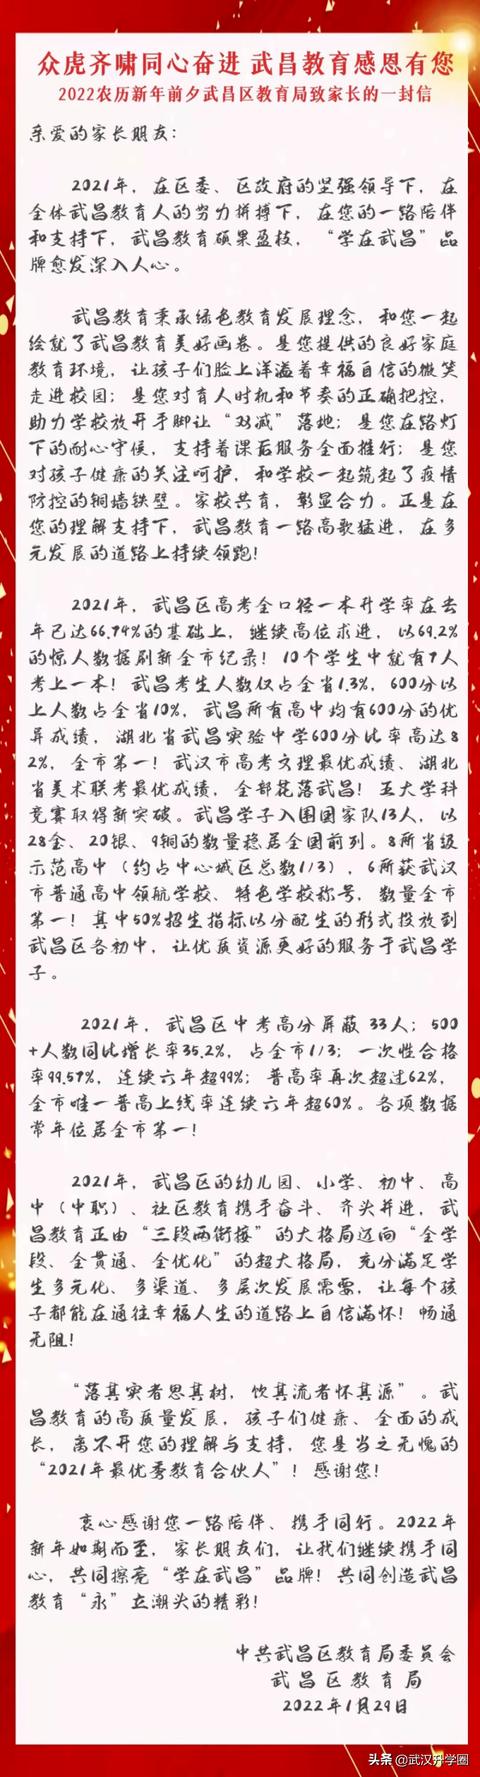 众虎齐啸同心奋进 武昌教育感恩有您
2022农历新年前夕武昌区教育局致家长的一封信
亲爱的家长朋友：
2021年，在区委、区政府的坚强领导下，在
全体武昌教育人的努力拼搏下，在您的一路陪伴
和支持下，武昌教育硕果盈枝，“学在武昌”品
牌愈发深入人心。
武昌教育秉承绿色教育发展理念，和您一起
绘就了武昌教育美好画卷。是您提供的良好家庭
教育环境，让孩子们脸上洋溢着幸福自信的微笑
走进校园；是您对育人时机和节奏的正确把控，
助力学校放开手脚让“双减”落地；是您在路灯
下的耐心守候，支持着课后服务全面推行；是您
对孩子健康的关注呵护，和学校一起筑起了疫情
防控的铜墙铁壁。家校共育，彰显合力。正是在
您的理解支持下，武昌教育一路高歌猛进，在多
元发展的道路上持续领跑！
2021年，武昌区高考全口径一本升学率在去
年已达66.74%的基础上，继续高位求进，以69.2%
的惊人数据刷新全市纪录！10个学生中就有7人
考上一本！武昌考生人数仅占全省1.3%，600分以
上人数占全省10%，武昌所有高中均有600分的优
异成绩，湖北省武昌实验中学600分比率高达8
2%，全市第一！武汉市高考文理最优成绩、湖北
省美术联考最优成绩，全部花落武昌！五大学科
竞赛取得新突破。武昌学子入围国家队13人，以
28金、20银、9铜的数量稳居全国前列。8所省级
示范高中（约占中心城区总数1/3），6所获武汉
市普通高中领航学校、特色学校称号，数量全市
第一！其中50%招生指标以分配生的形式投放到
武昌区各初中，让优质资源更好的服务于武昌学
子。
2021年，武昌区中考高分屏蔽 33人；500
+人数同比增长率35.2%，占全市1/3；一次性合格
率99.57%，连续六年超99%；普高率再次超过62%，
全市唯一普高上线率连续六年超60%。各项数据
常年位居全市第一！
2021年，武昌区的幼儿园、小学、初中、高
中（中职）、社区教育携手奋斗、齐头并进，武
昌教育正由“三段两衔接”的大格局迈向“全学
段、全贯通、全优化”的超大格局，充分满足学
生多元化、多渠道、多层次发展需要，让每个孩
子都能在通往幸福人生的道路上自信满怀！畅通
无阻！
“落其实者思其树，饮其流者怀其源”。武
昌教育的高质量发展，孩子们健康、全面的成
长，离不开您的理解与支持，您是当之无愧的
“2021年最优秀教育合伙人”！感谢您！
衷心感谢您一路陪伴、携手同行。2022年
新年如期而至，家长朋友们，让我们继续携手同
心，共同擦亮“学在武昌”品牌！共同创造武昌
教育“永”立潮头的精彩！
中共武昌区教育局委员会
武昌区教育局
2022年1月29日
头条@武汉升学圈